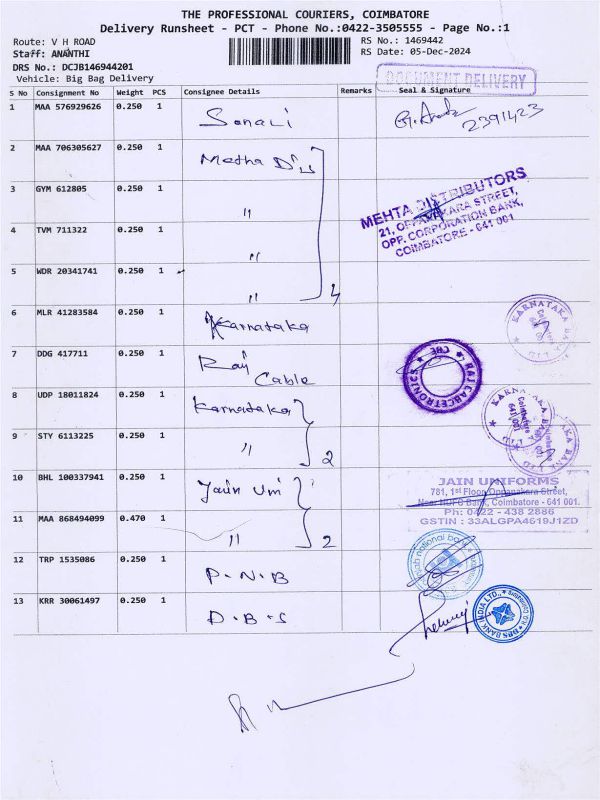 THE PROFESSIONAL COURIERS, COIMBATORE
Delivery Runsheet - PCT - Phone No.:0422-3505555 - Page No.:1
Route: V H ROAD
RS No.: 1469442
Staff: ANANTHI
RS Date: 05-Dec-2024
DRS No.: DCJB146944201
Vehicle: Big Bag Delivery
DOCUMENT DELIVERY
S No Consignment No Weight PCS Consignee Details Remarks Seal & Signature
1 MAA 576929626 0.250 1 Sonali
2391423
2 MAA 706305627 0.250 1 Metha D's
3 GYM 612805 0.250 1 "
MEHTA DISTRIBUTORS
21, OPPANAKARA STREET,
OPP. CORPORATION BANK,
COIMBATORE - 641 001
4 TVM 711322 0.250 1 "
5 WDR 20341741 0.250 1 " 4
6 MLR 41283584 0.250 1 Karnataka
KARNATAKA BANK LTD
Coimbatore
7 DDG 417711 0.250 1 Raj Cable
8 UDP 18011824 0.250 1 Karnataka
KARNATAKA BANK LTD
Coimbatore
641 001
9 STY 6113225 0.250 1 " 2
10 BHL 100337941 0.250 1 Jain Uni
JAIN UNIFORMS
781, 1st Floor, Oppanakara Street,
Near HDFC Bank, Coimbatore - 641 001.
Ph: 0422 - 438 2886
GSTIN : 33ALGPA4619J1ZD
11 MAA 868494099 0.470 1 " 2
12 TRP 1535086 0.250 1 P.N.B
punjab national bank
13 KRR 30061497 0.250 1 D.B.S
DBS BANK INDIA LTD.,